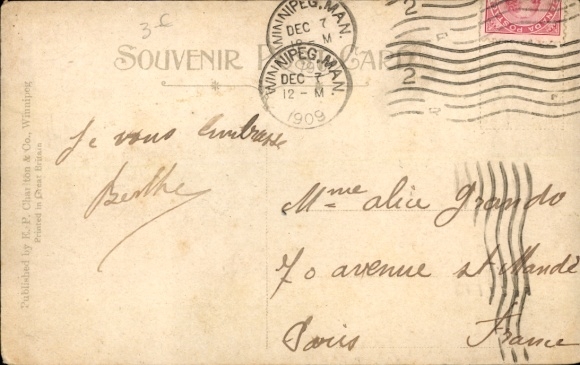 3-
WINNIPEG, MAN.
DEC 7
12 - M
WINNIPEG, MAN.
DEC 7
12 - M
1909
2
2
SOUVENIR POST CARD
Je vous embrasse
Berthe
Mme alice Grando
70 avenue st Mandé
Paris France
Published by R. P. Charlton & Co., Winnipeg
Printed in Great Britain